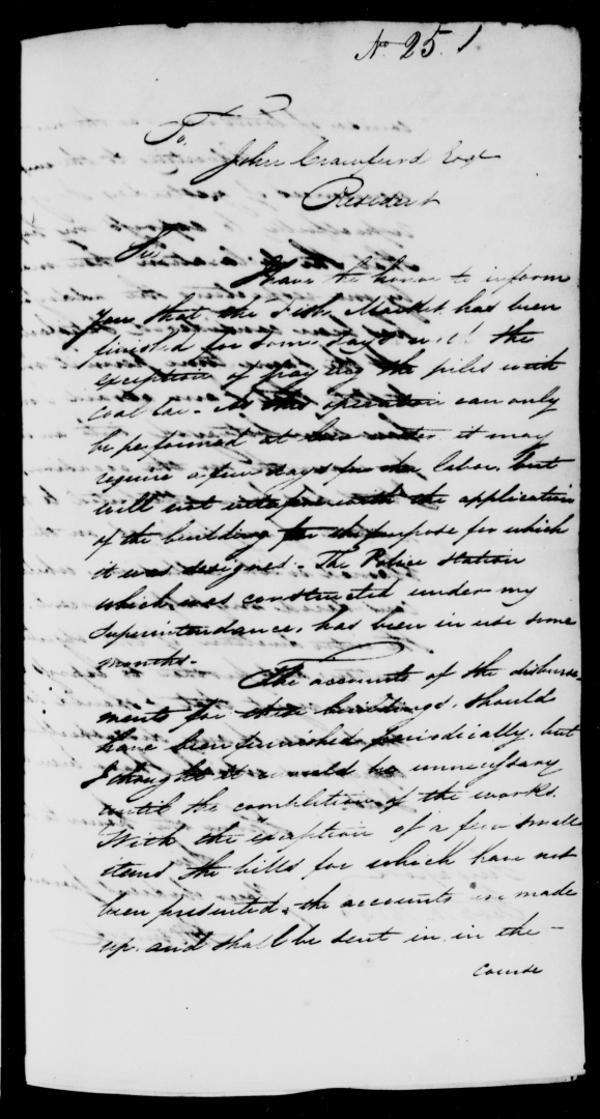 No 25. 1
To,
John Crawfurd Esqr
Resident
Sir
I have the honor to inform
you that the Fish Market has been
finished for some days with the
exception of paying the piles with
coal tar - As this operation can only
be performed at low water it may
require a few days for the labor, but
will not interfere with the application
of the building for the purpose for which
it was designed - The Police Station
which was constructed under my
Superintendance, has been in use some
months.
The accounts of the disburse-
ments for these buildings, should
have been furnished periodically, but
I thought it would be unnecessary
until the completion of the works.
With the exception of a few small
items the bills for which have not
been presented, the accounts are made
up and shall be sent in in the -
course